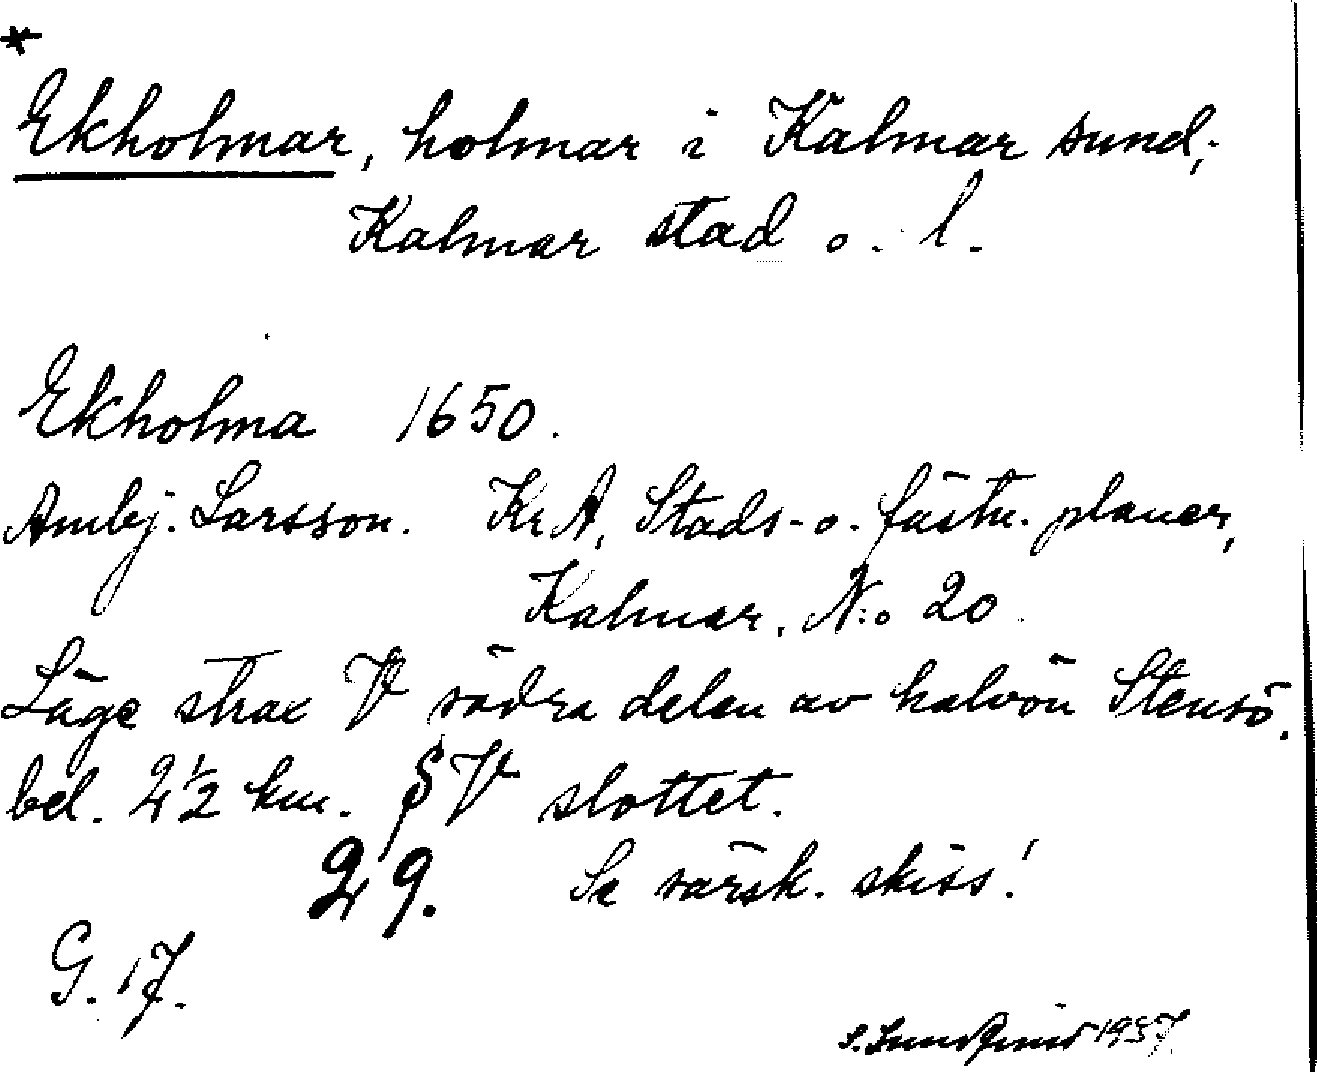 *
Ekholmar, holmar i Kalmar sund,
Kalmar stad o. l.
Ekholma 1650.
Ambj. Larsson. KrA, Stads- o. fästn. planer,
Kalmar. N:o 20.
Läge strax V södra delen av halvön Stensö.
bel. 2 1/2 km. SV slottet.
29. Se särsk. skiss!
G. 17.
S. 1937